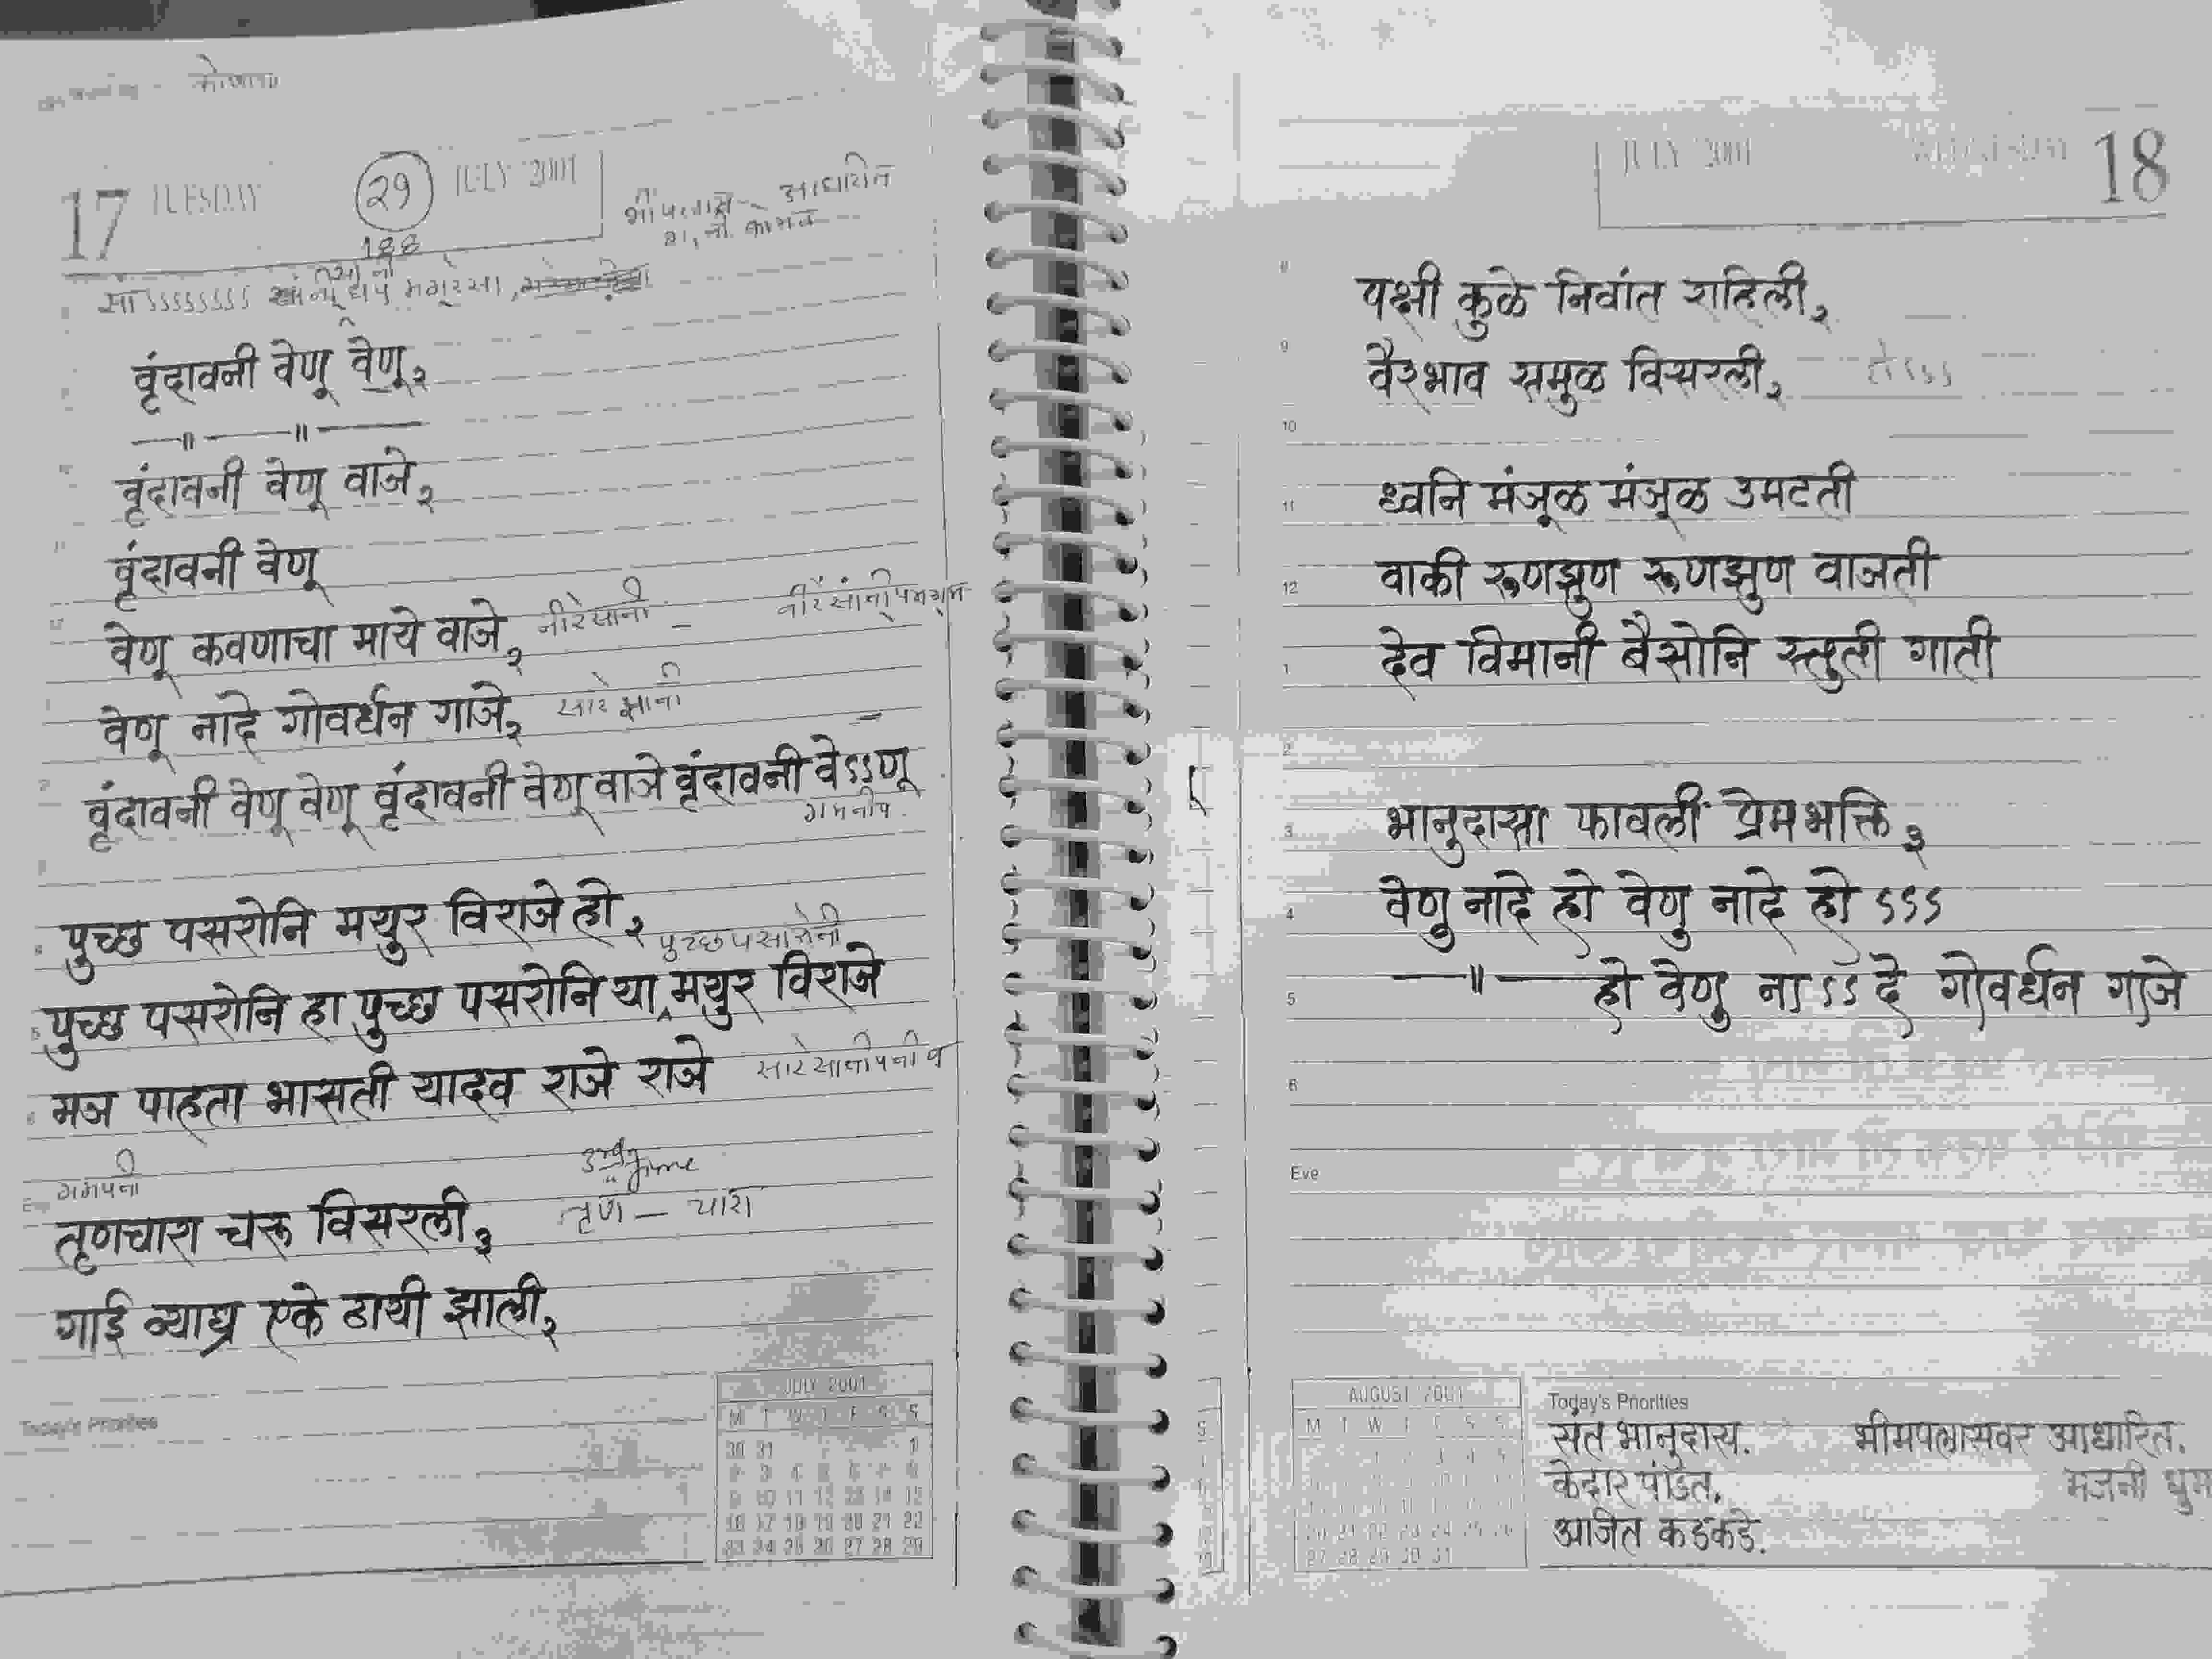 17 TUESDAY 29 JULY 2001 आधारित
188
वृंदावनी वेणू वेणू२
—॥——॥——
वृंदावनी वेणू वाजे२
वृंदावनी वेणू
वेणू कवणाचा माये वाजे२ नीरेसानी –
वेणू नादे गोवर्धन गाजे२ सारेसानी
वृंदावनी वेणू वेणू वृंदावनी वेणू वाजे वृंदावनी वेऽऽणू
गमनीप
पुच्छ पसरोनि मयुर विराजे हो२
पुच्छ पसरोनी
पुच्छ पसरोनि हा पुच्छ पसरोनि या मयुर विराजे
मज पाहता भासती यादव राजे राजे सारेसानीपनीप
गमपनी
तृणचारा चरू विसरली३ तृण — चारा
गाई व्याघ्र एके ठायी झाली२
Today's Priorities
JULY 2001
M T W T F S S
30 31 1
2 3 4 5 6 7 8
9 10 11 12 13 14 15
16 17 18 19 20 21 22
23 24 25 26 27 28 29
JULY 2001 WEDNESDAY 18
8 पक्षी कुळे निवांत राहिली२
9 वैरभाव समुळ विसरली२
10
11 ध्वनि मंजूळ मंजूळ उमटती
12 वाकी रूणझुण रूणझुण वाजती
1 देव विमानी बैसोनि स्तुती गाती
2
3 भानुदासा फावली प्रेमभक्ति३
4 वेणु नादे हो वेणु नादे हो ऽऽऽ
5 —॥— हो वेणु नाऽऽऽदे गोवर्धन गाजे
6
Eve
AUGUST 2001
M T W T F S S
27 28 29 30 31
Today's Priorities
संत भानुदास. भीमपलासवर आधारित.
केदार पंडित. भजनी धुम
अजित कडकडे.